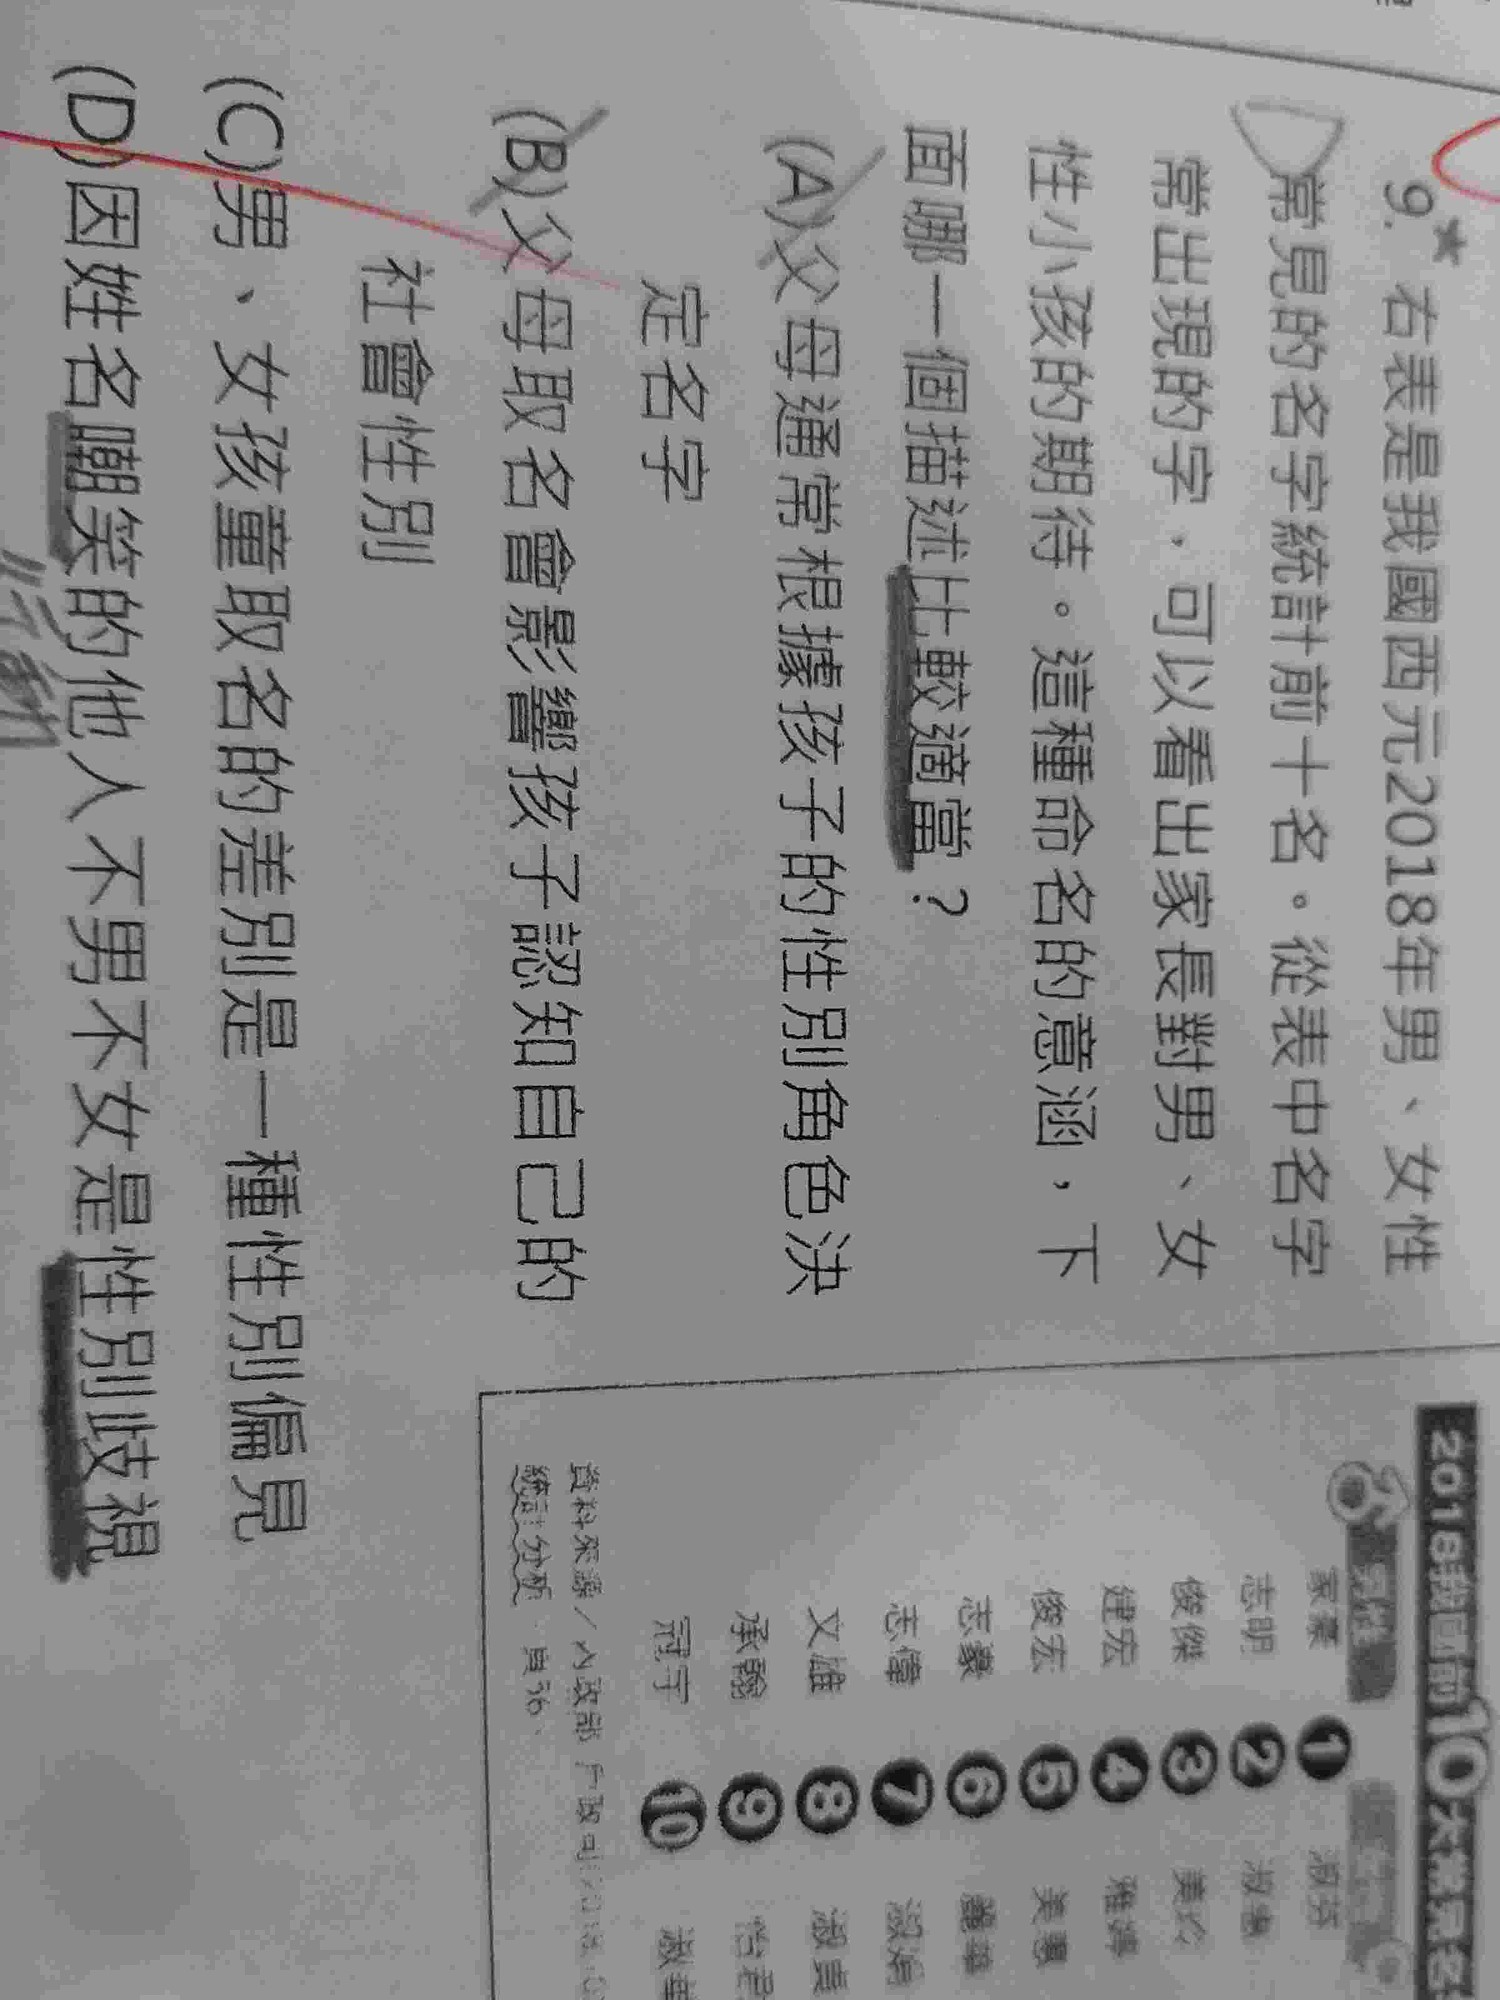 9.★ 右表是我國西元2018年男、女性
常見的名字統計前十名。從表中名字
常出現的字，可以看出家長對男、女
性小孩的期待。這種命名的意涵，下
面哪一個描述比較適當？
(A)父母通常根據孩子的性別角色決
定名字
(B)父母取名會影響孩子認知自己的
社會性別
(C)男、女孩童取名的差別是一種性別偏見
(D)因姓名嘲笑的他人不男不女是性別歧視
行動
2018我國前10大常見名
家豪 1 淑芬
志明 2 淑惠
俊傑 3 美玲
建宏 4 雅婷
俊宏 5 美惠
志豪 6 麗華
志偉 7 淑娟
文雄 8 淑貞
承翰 9 怡君
冠宇 10 淑華
資料來源／內政部 戶政司
統計分析